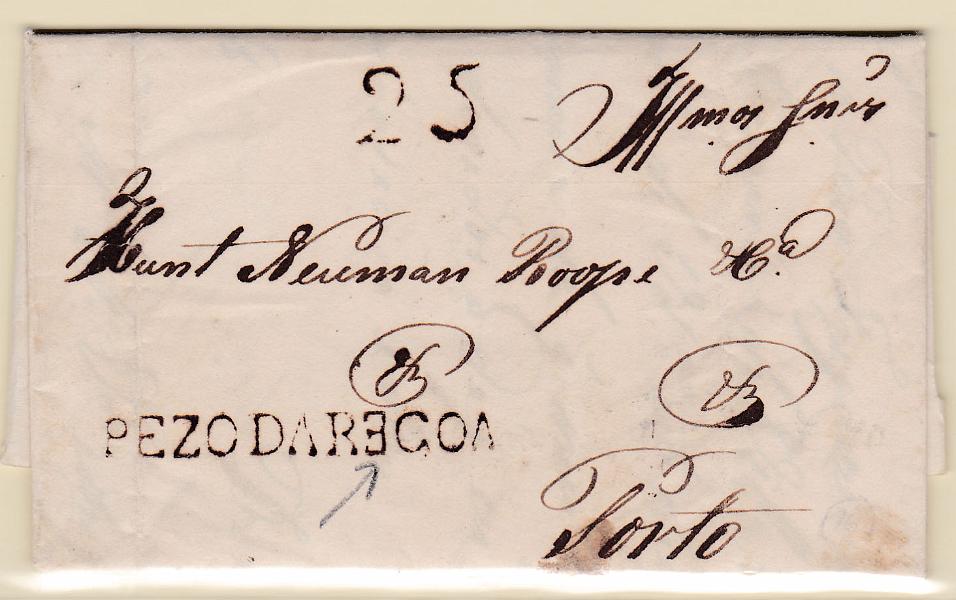 25
Illmos Snrs
Hunt Newman Roope & Ca.
&
&
PEZO DA REGOA
Porto